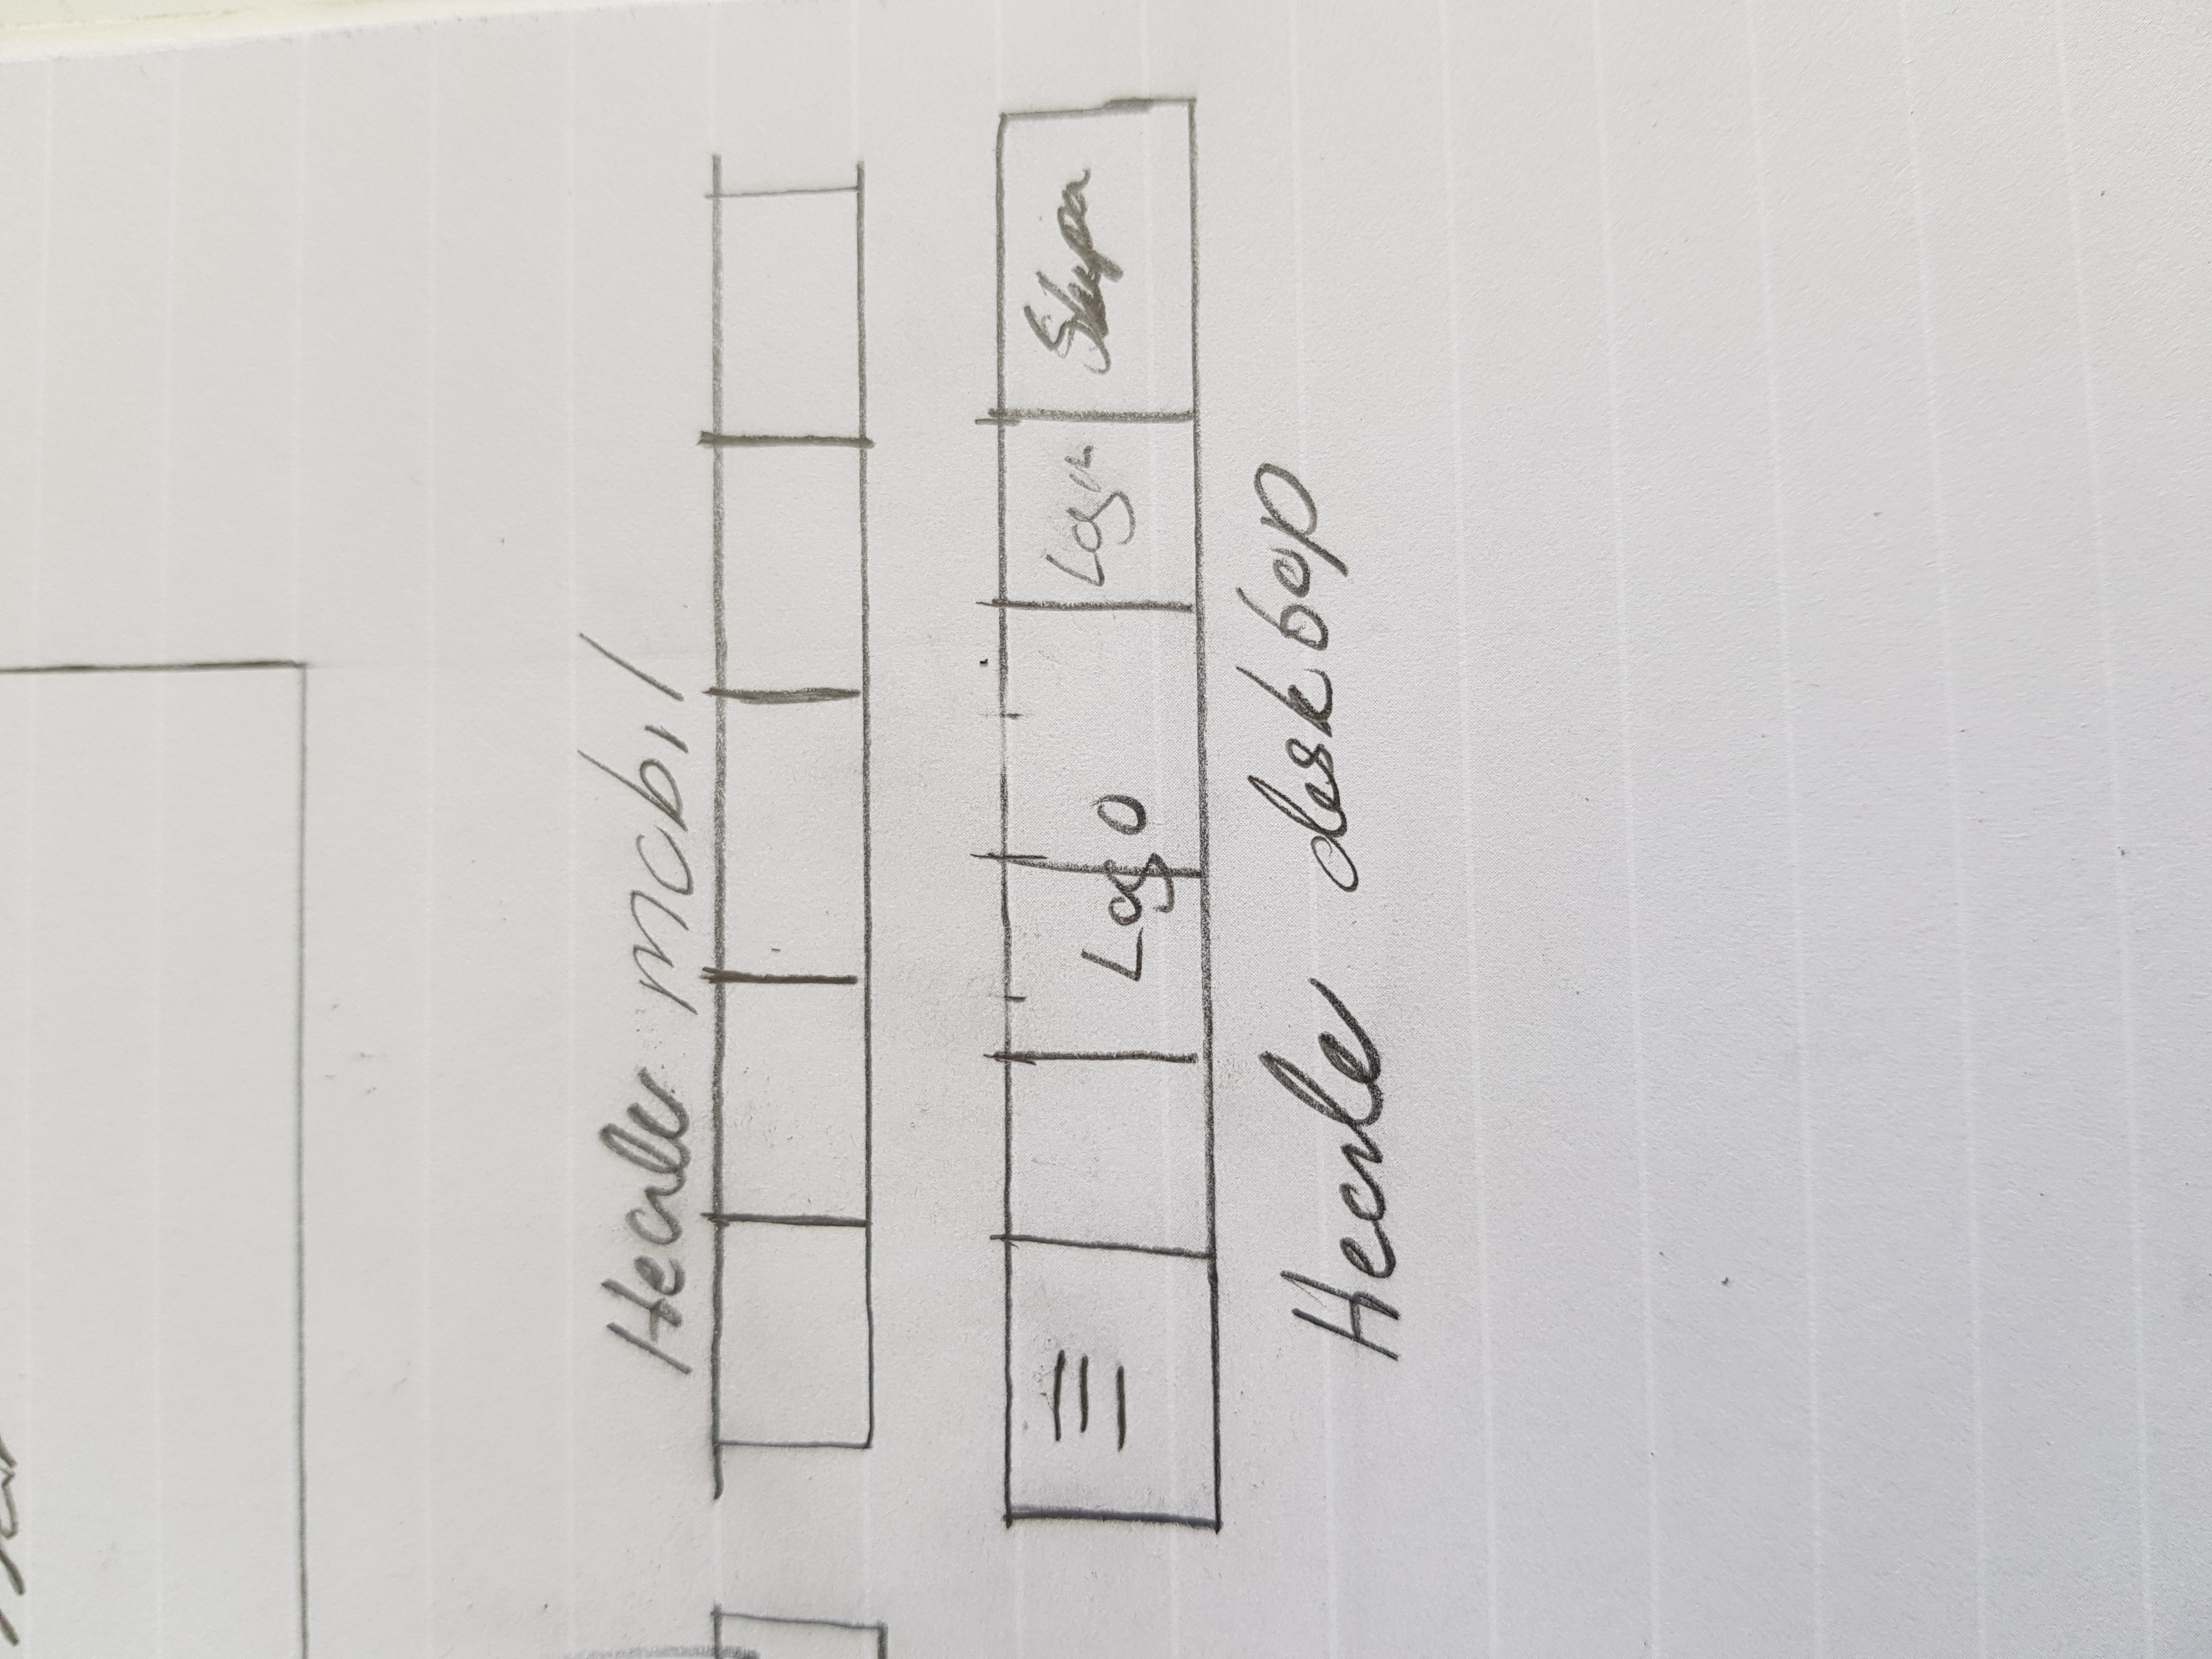 Header mobil
Logo Login Skapa
Header desktop